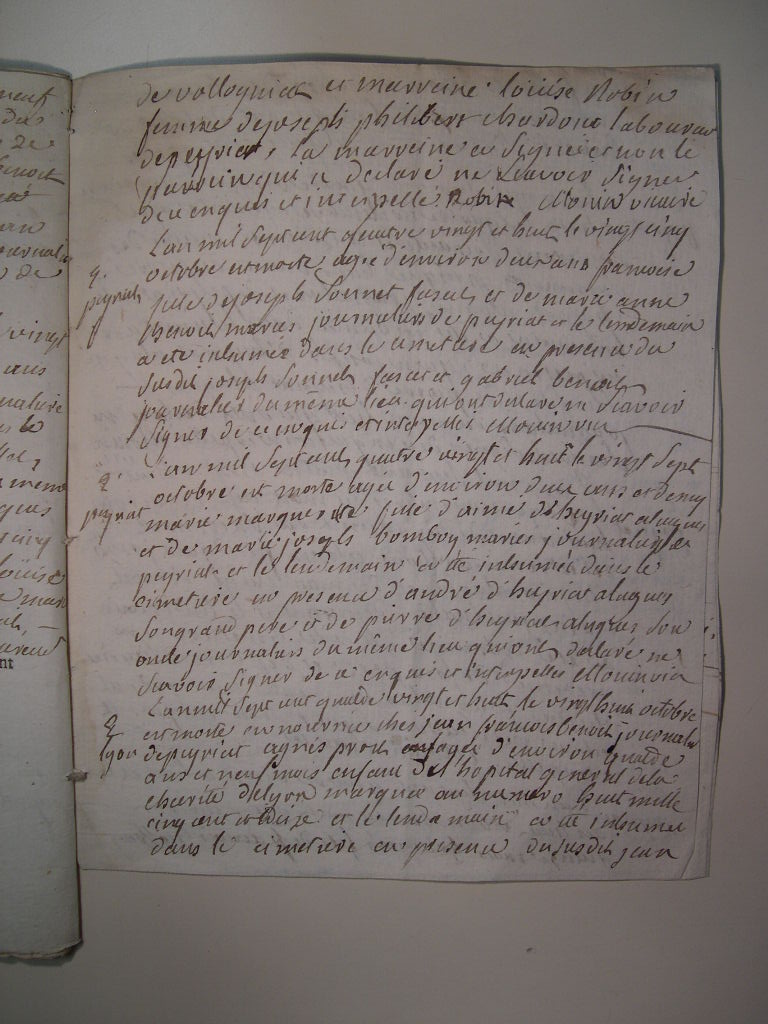 de vollogniat et marreine louise Robin
femme de joseph philibert chardont laboureur
de peyriat, la marreine a signée et non le
parrein qui a declaré ne scavoir signer
de ce enquis et interpellé Robin Mouin vicaire
L'an mil sept cent quatre vingt et huit le vingt cinq
octobre est morte agée d'environ deux ans francoise
q. peyriat
fille de joseph Sonnet et de marie anne
benoit mariés journaliers de peyriat et le lendemain
a eté inhumée dans le cimetiere en presence du
susdit joseph Sonnet et gabriel benoit
journalier du même lieu qui ont declaré ne scavoir
signer de ce enquis et interpellés Mouin vic
L'an mil sept cent quatre vingt et huit le vingt sept
octobre est morte agée d'environ deux ans et demy
peyriat
marie marguerite fille d'aimé d'heyriat
et de marie joseph bomboy mariés journaliers de
peyriat et le lendemain a eté inhumée dans le
cimetiere en presence d'andré d'heyriat
son grand pere et de pierre d'heyriat son
oncle journaliers du même lieu qui ont declaré ne
scavoir signer de ce enquis et interpellés Mouin vic
L'an mil sept cent quatre vingt et huit le vingt huit octobre
est morte en nourrice chez jean françois benoit journalier
lyon
de peyriat agnès agée d'environ quatre
ans et neuf mois enfant de l'hopital general de la
charité de lyon marquée au numero huit mille
cinq cent et et le lendemain a eté inhumée
dans le cimetiere en presence du susdit jean